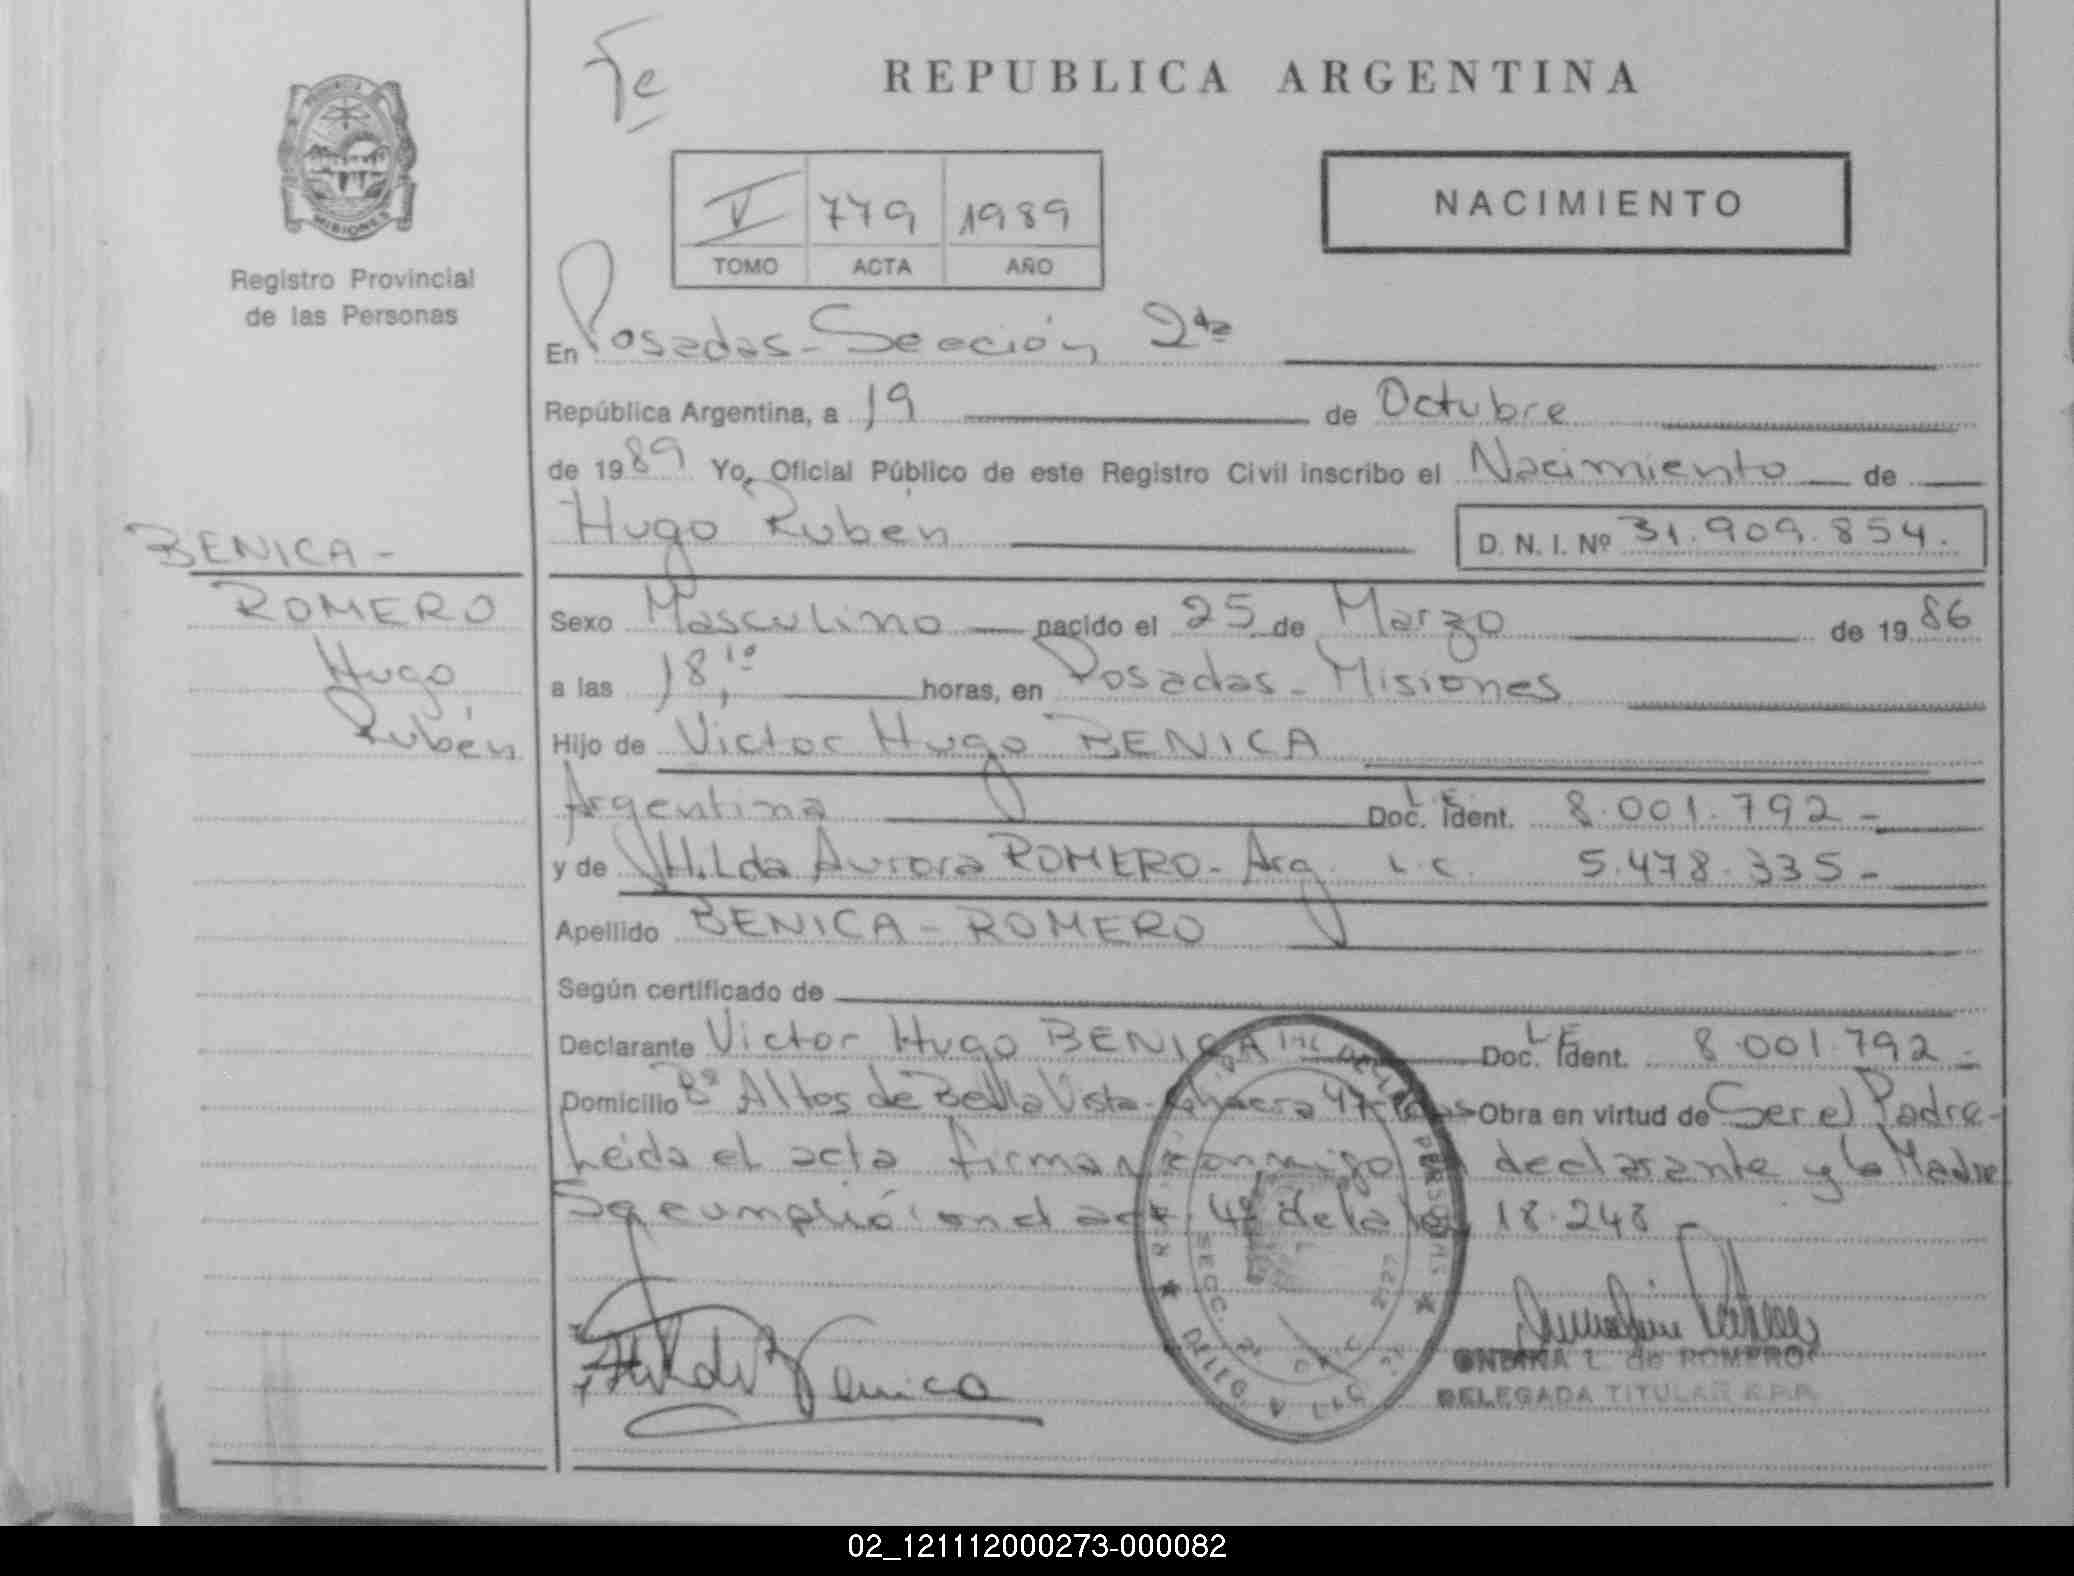 Fe
REPUBLICA ARGENTINA
MISIONES
Registro Provincial
de las Personas
V 779 1989
TOMO ACTA AÑO
NACIMIENTO
En Posadas - Sección 2da
República Argentina, a 19 de Octubre
de 1989 Yo, Oficial Público de este Registro Civil inscribo el Nacimiento de
Hugo Rubén D. N. I. Nº 31.909.854.
BENICA -
ROMERO
Hugo
Rubén
Sexo Masculino nacido el 25 de Marzo de 1986
a las 18,10 horas, en Posadas - Misiones
Hijo de Victor Hugo BENICA
Argentina L.E. Doc. Ident. 8.001.792 -
y de Hilda Aurora ROMERO - Arg. L.C. 5.478.335 -
Apellido BENICA - ROMERO
Según certificado de
Declarante Victor Hugo BENICA L.E. Doc. Ident. 8.001.792 -
Domicilio Bº Altos de Bella Vista - Chacra 47 Obra en virtud de Ser el Padre -
Leida el acta firman conmigo declarante y la Madre
Se cumplió con el art. 4º de la 18.248 -
SECC. 2ª
Hilda Benica
ONDINA L. de ROMERO
DELEGADA TITULAR R.P.P.
02_121112000273-000082